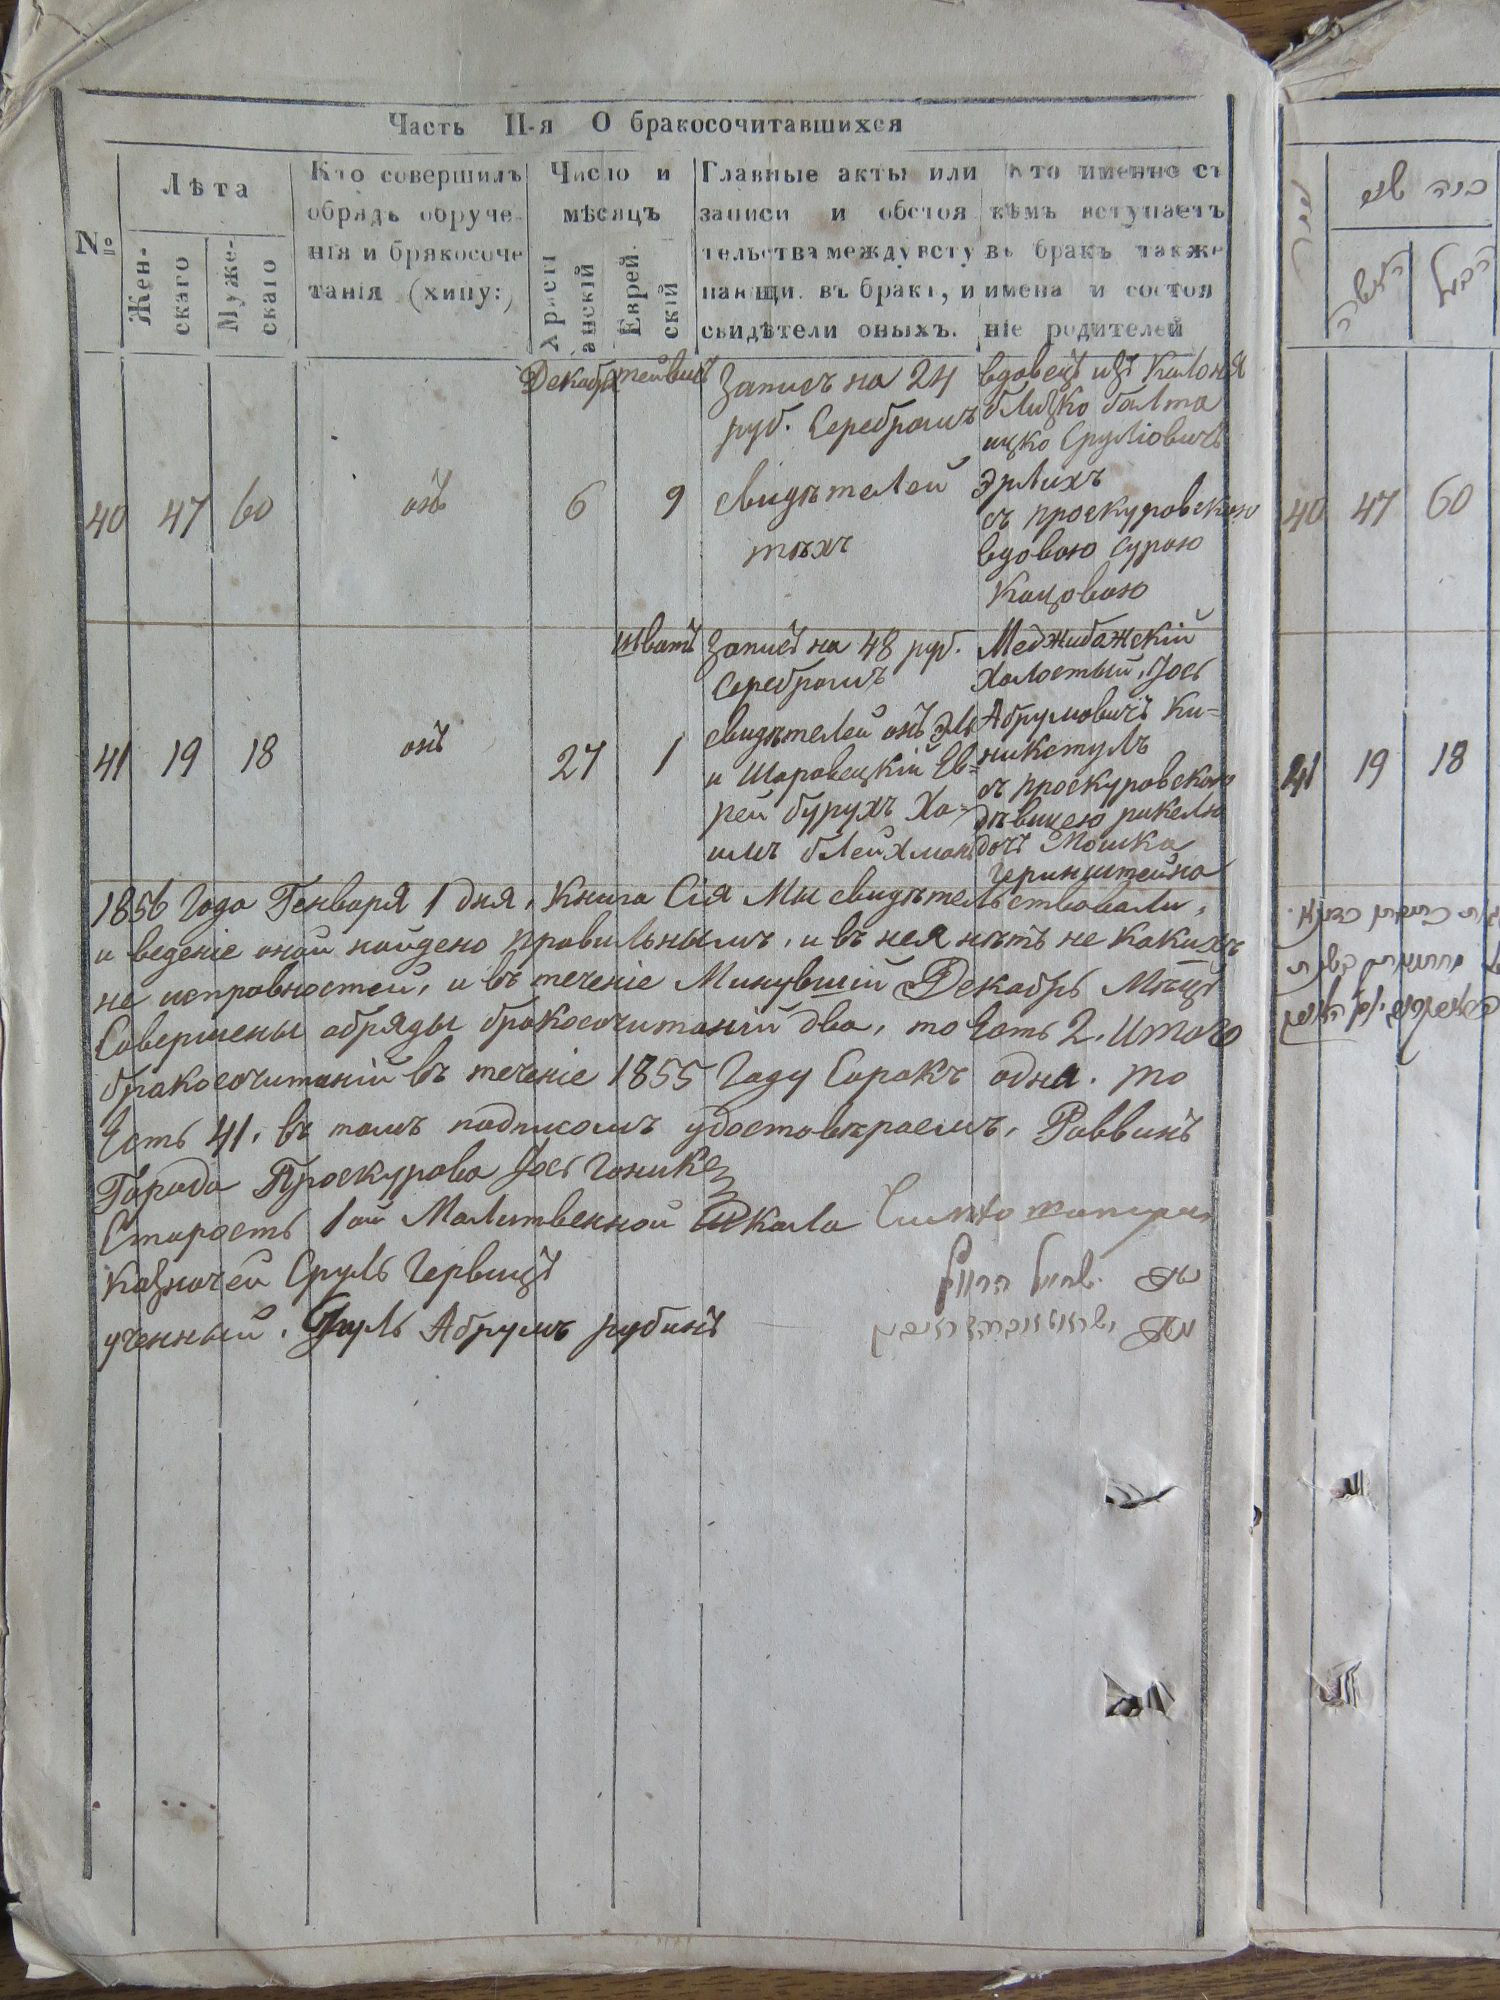 Часть II-я О бракосочитавшихся
№
Лѣта
Жен-
скаго
Муже-
скаго
Кто совершилъ
обрядъ обруче-
нія и брякосоче
танія (хипу:)
Число и
мѣсяцъ
Христі
анскій
Еврей.
скій
Главные акты или
записи и обстоя
тельства между всту
пающи. въ бракъ, и
свидѣтели оныхъ.
Кто именно съ
кѣмъ вступаетъ
въ бракъ также
имена и состоя
ніе родителей
Декабр тейвисъ
40 47 60 онъ 6 9
Записъ на 24
руб. Серебромъ
свидѣтелей
тѣхъ
вдовецъ изъ Калонія
близко балта
ицко Сруліовичъ
Эрлихъ
съ проскуровскою
вдовою сурою
Кацовою
шватъ
41 19 18 онъ 27 1
Записъ на 48 руб.
Серебромъ
свидѣтелей онъ Эль
и Шаровецкій Ев=
рей бурухъ Ха=
имъ блейхманъ
Меджибажскій
Холостый, Іось
Абрумовичъ Ки=
никстулъ
съ проскуровскою
дѣвицею рикелю
дочъ Мошка
Геринштейна
1856 Года Генваря 1 дня, Книга Сія Мы свидѣтельствовали,
и веденіе оной найдено правильнымъ, и въ нея нѣтъ не какихъ
не исправностей, и въ теченіе Минувшій Декабрь Мѣсцъ
Совершены обряды бракосочитаній два, то Есть 2. Итого
бракосочитаній въ теченіе 1855 Году Сорокъ одна. то
Есть 41, въ томъ подписомъ удостовѣраемъ, Раввинъ
Города Проскурова Іось Гоникъ
Старостъ 1ой Малитвенной Шкала
Казначей Сруль Гервицъ
ученный, Сруль Абрумъ рубинъ
שנים
40 47 60
41 19 18